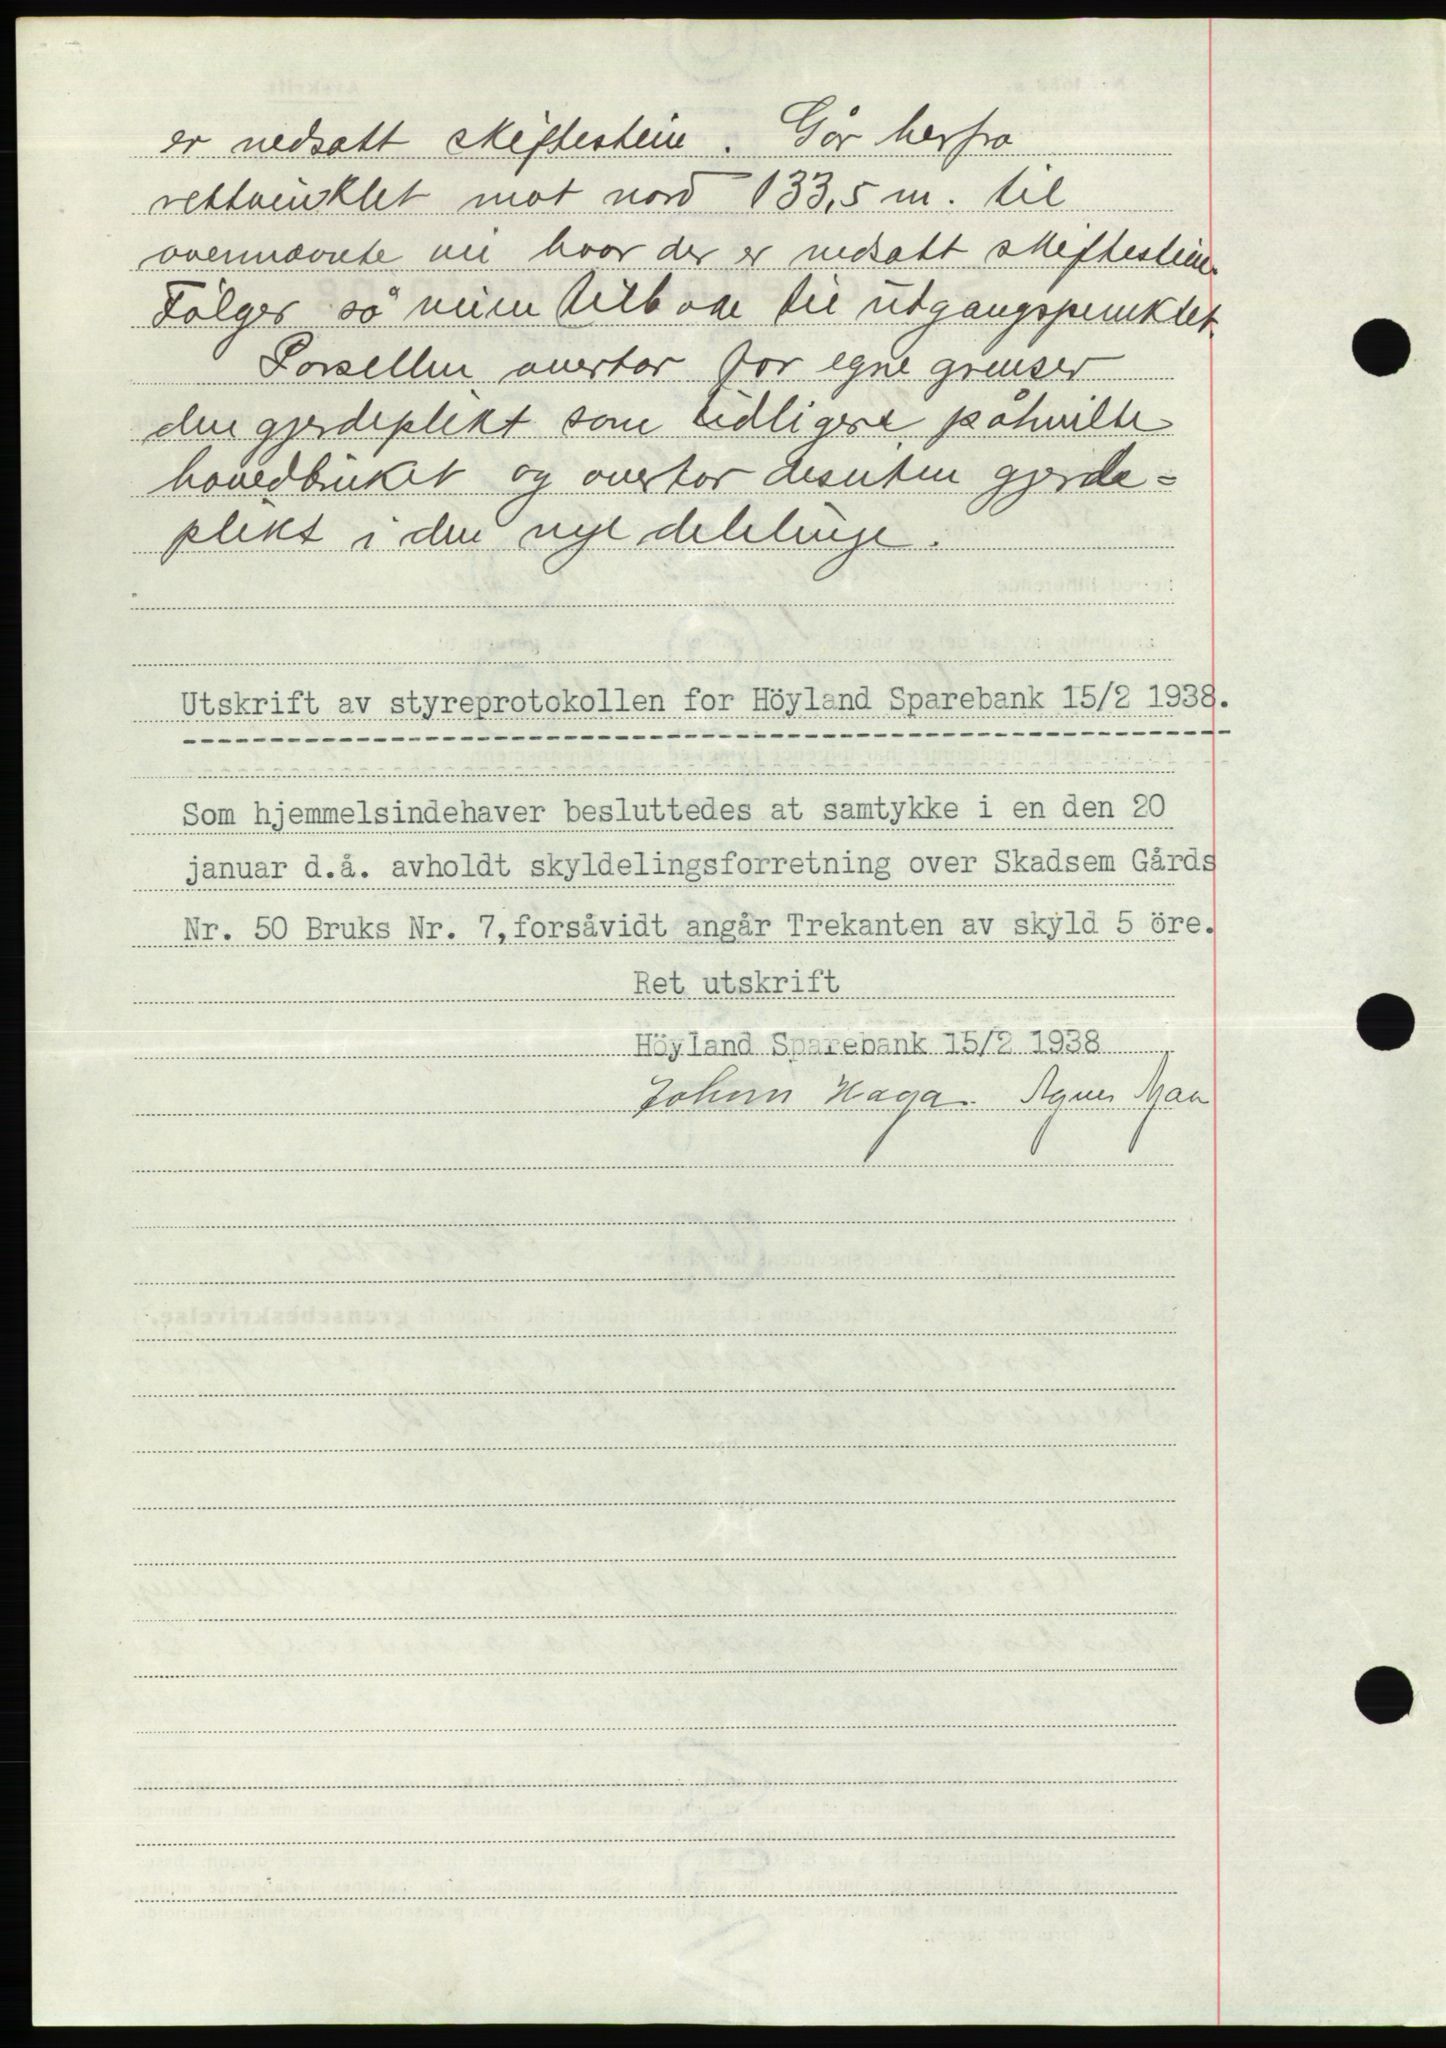 er nedsatt skiftestein. Går herfra
rettvinklet mot nord 133,5 m. til
ovennævnte vei hvor der er nedsatt skiftestein.
Følger så veien tilbake til utgangspunktet.
Parsellen overtar for egne grenser
den gjerdeplikt som tidligere påhvilte
hovedbruket og overtar desuten gjerde=
plikt i den nye delelinje.
Utskrift av styreprotokollen for Höyland Sparebank 15/2 1938.
Som hjemmelsindehaver besluttedes at samtykke i en den 20
januar d.å. avholdt skyldelingsforretning over Skadsem Gårds
Nr. 50 Bruks Nr. 7, forsåvidt angår Trekanten av skyld 5 öre.
Ret utskrift
Höyland Sparebank 15/2 1938
Johan Haga. Agnes